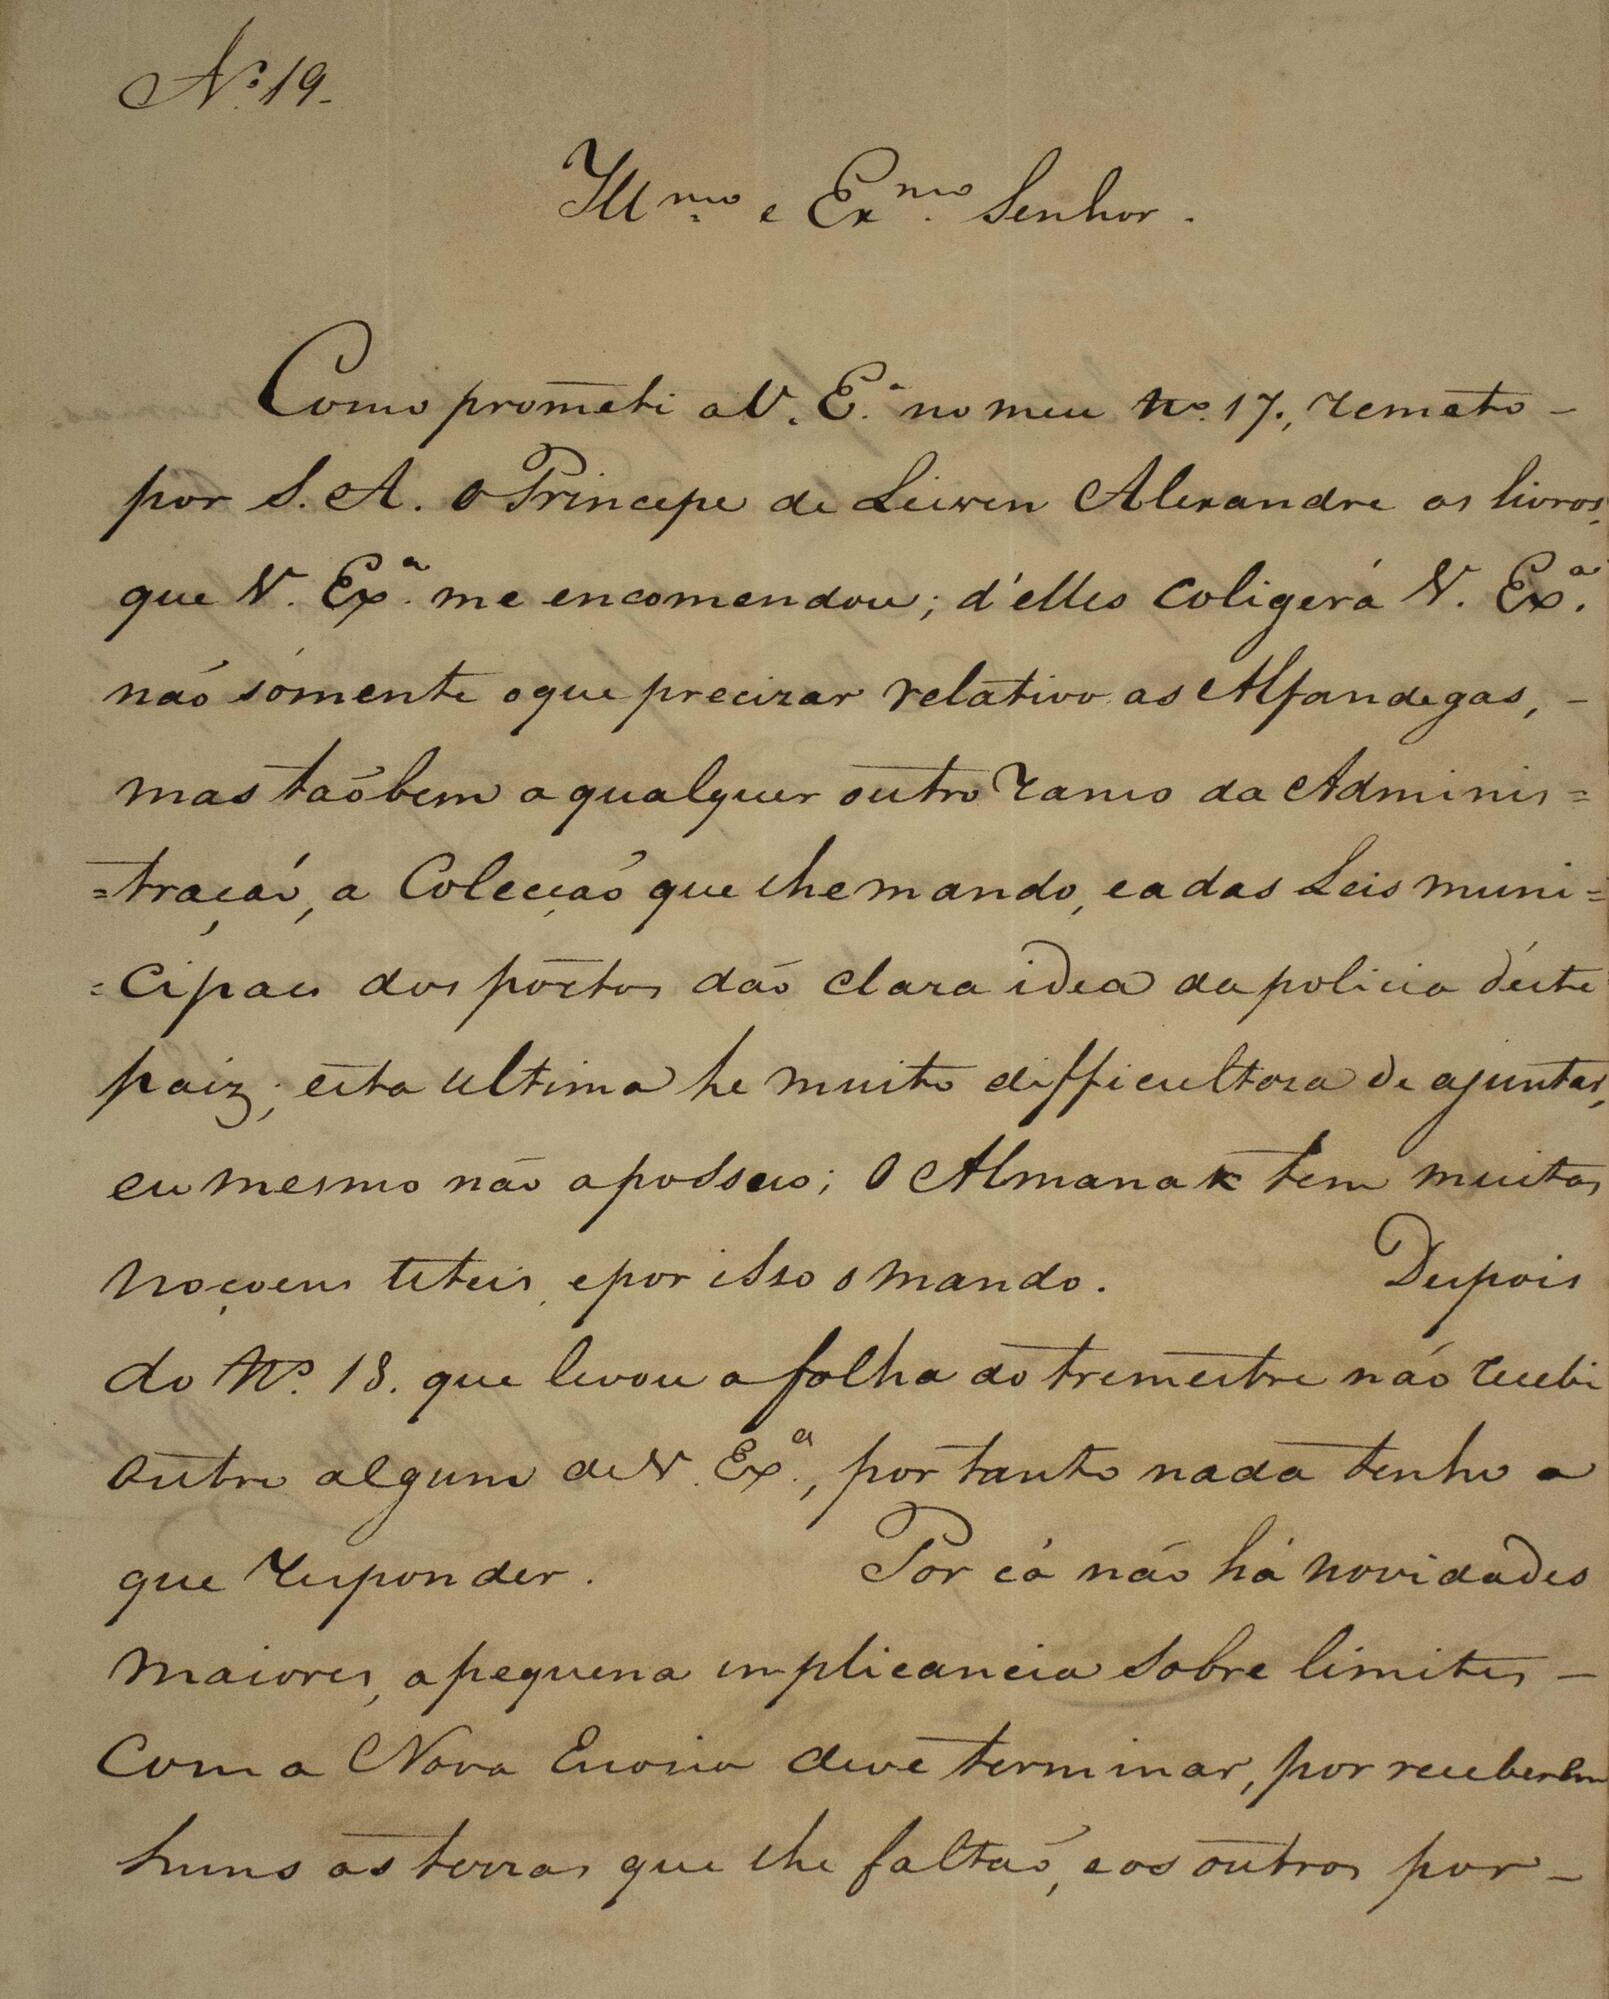 Nº 19.
Illmo e Exmo Senhor.
Como prometi a V. E.a no meu Nº. 17., remeto -
por S. A. o Principe de Leiwen Alexandre os livros,
que V. Ex.a me encomendou; d'elles coligerá V. Ex.a
não sómente o que precizar relativo as Alfandegas, -
mas taõbem a qualquer outro ramo da Adminis=
=traçaõ, a Colecçaõ que lhe mando, e a das Leis muni=
=cipaes dos portos daõ clara idea da policia d'este
paiz; esta ultima he muito difficultoza de ajuntar,
eu mesmo não a possuo; O Almanak tem muitas
noçoens uteis, e por isso o mando. Depois
do Nº. 18. que levou a folha do trimestre não recebi
outro algum de V. Ex.a, por tanto nada tenho a
que responder. Por cá não há novidades
maiores, a pequena implicancia sobre limites -
com a Nova Escosia deve terminar, por receberem
huns as terras que lhe faltaõ, e os outros por -